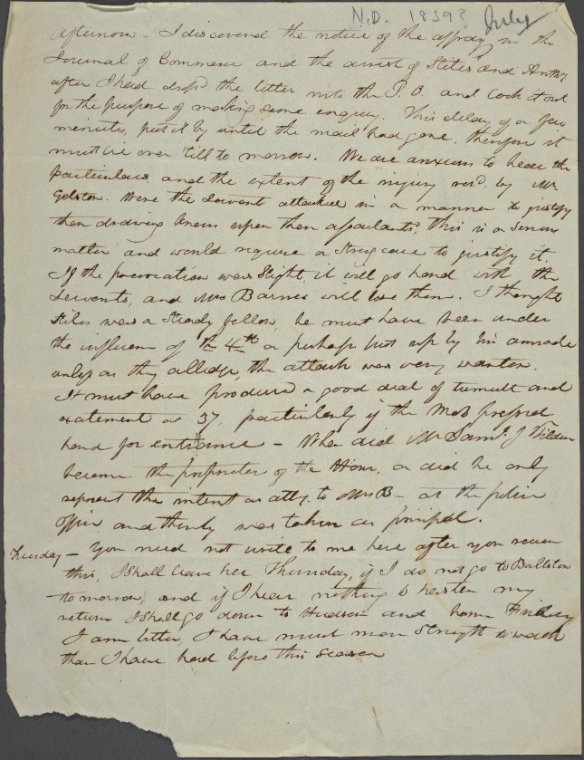 N.D. 1839? July
afternoon - I discovered the notice of the affray in the
Journal of Commerce and the arrest of Stiles and Anthy
after I had dropd the letter into the P.O. and
for the purpose of making some enquiry. This delay of a few
minutes, put it by until the mail had gone, therefore it
must lie over 'till to morrow. We are anxious to hear the
particulars and the extent of the injury recd. by Mr
Were the servants attacked in a manner to justify
their drawing knives upon their assailants, this is a serious
matter and would require a strong case to justify it.
If the provocation was slight it will go hard with the
servants, and Mrs Barnes will lose them. I thought
Stiles was a steady fellow, he must have been under
the influence of the 4th or perhaps but up by his comrade
unless as they alledge, the attack was very wanton.
It must have produced a good deal of tumult and
excitement at 37, particularly if the Mob pressed
hard for entrance - When did Mr Saml. J Tilden
become the proprietor of the House, or did he only
represent the interest as atty. to Mrs B - at the police
office and thereby was taken as principal.
Tuesday - You need not write to me here after you receive
this, I shall leave here Thursday, if I do not go to Ballston
tomorrow, and if I hear nothing to hasten my
return I shall go down to Hudson and home Friday
I am better, I have much more strength to walk
than I have had before this season